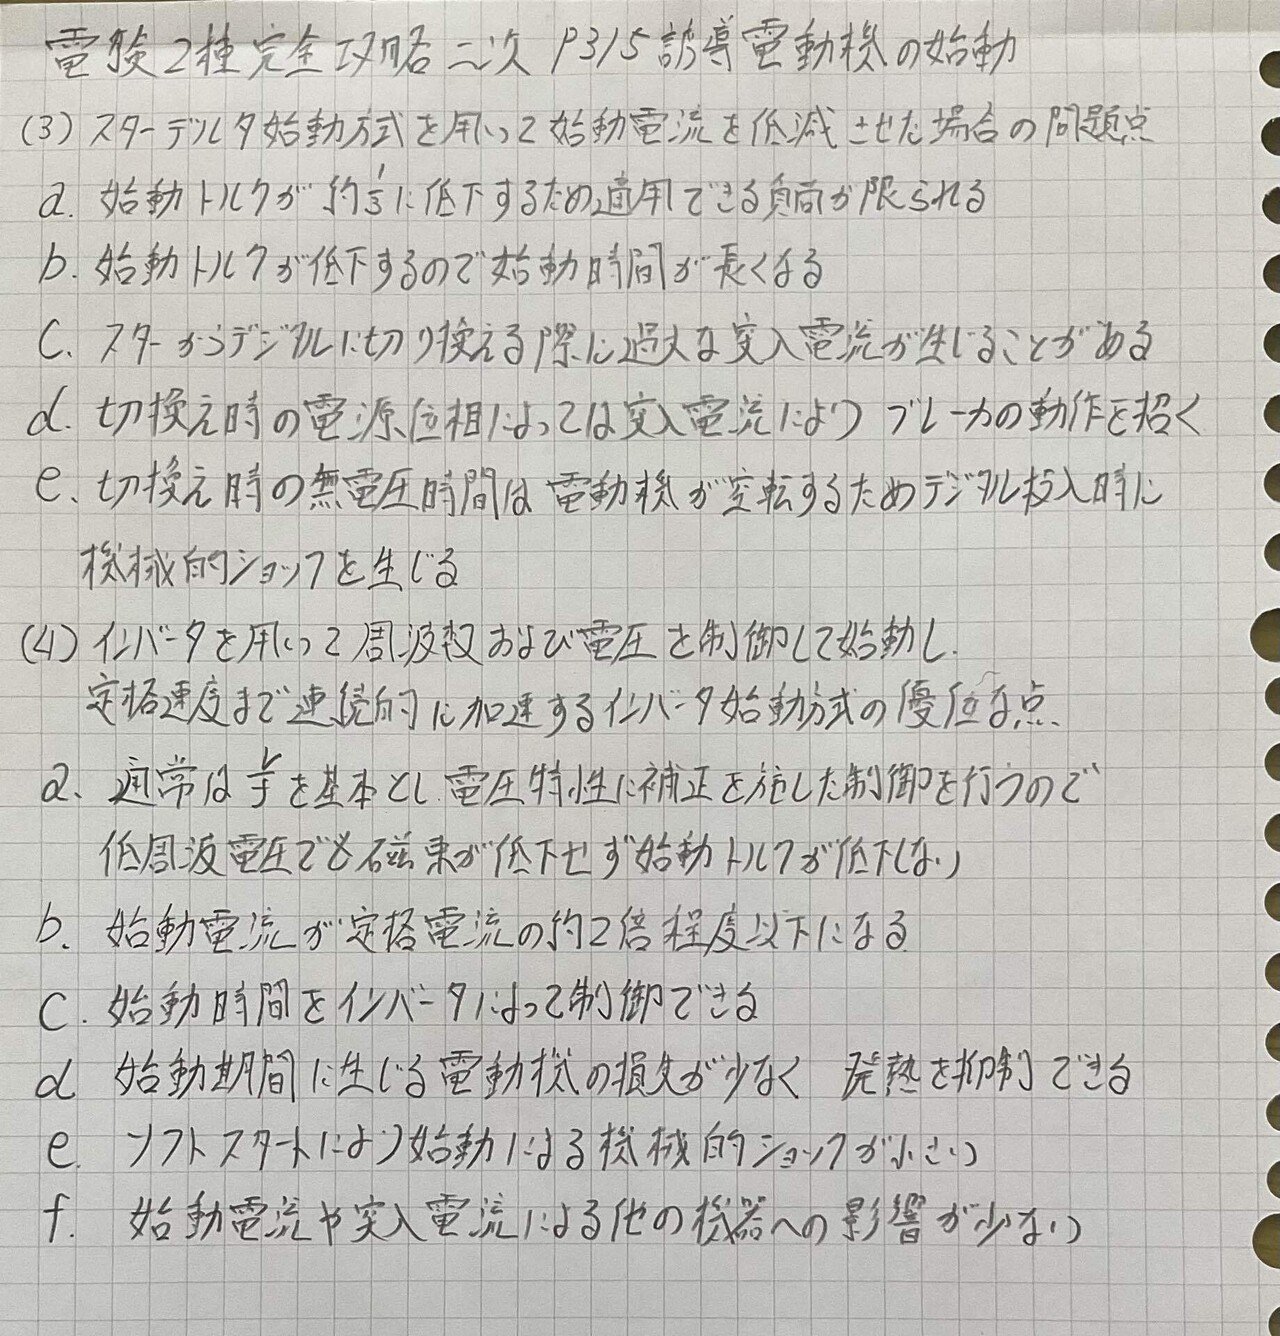 電験2種完全攻略二次 P315誘導電動機の始動
(3) スターデルタ始動方式を用いって始動電流を低減させた場合の問題点
a. 始動トルクが約1/3に低下するため適用できる負荷が限られる
b. 始動トルクが低下するので始動時間が長くなる
C. スターからデジタルに切り換える際に過大な突入電流が生じることがある
d. 切換え時の電源位相によっては突入電流により ブレーカの動作を招く
e、切換え時の無電圧時間は電動機が空転するためデジタル投入時に
機械的ショックを生じる
(4) インバータを用いって周波数および電圧を制御して始動し.
定格速度まで連続的に加速するインバータ始動方式の優位な点
a、通常はV/fを基本とし.電圧特性に補正を施した制御を行うので
低周波電圧でも磁束が低下せず始動トルクが低下しない
b. 始動電流が定格電流の約2倍程度以下になる
C. 始動時間をインバータによって制御できる
d 始動期間に生じる電動機の損失が少なく 発熱を抑制できる
e. ソフトスタートにより始動による機械的ショックが小さい
f. 始動電流や突入電流による他の機器への影響が少ない